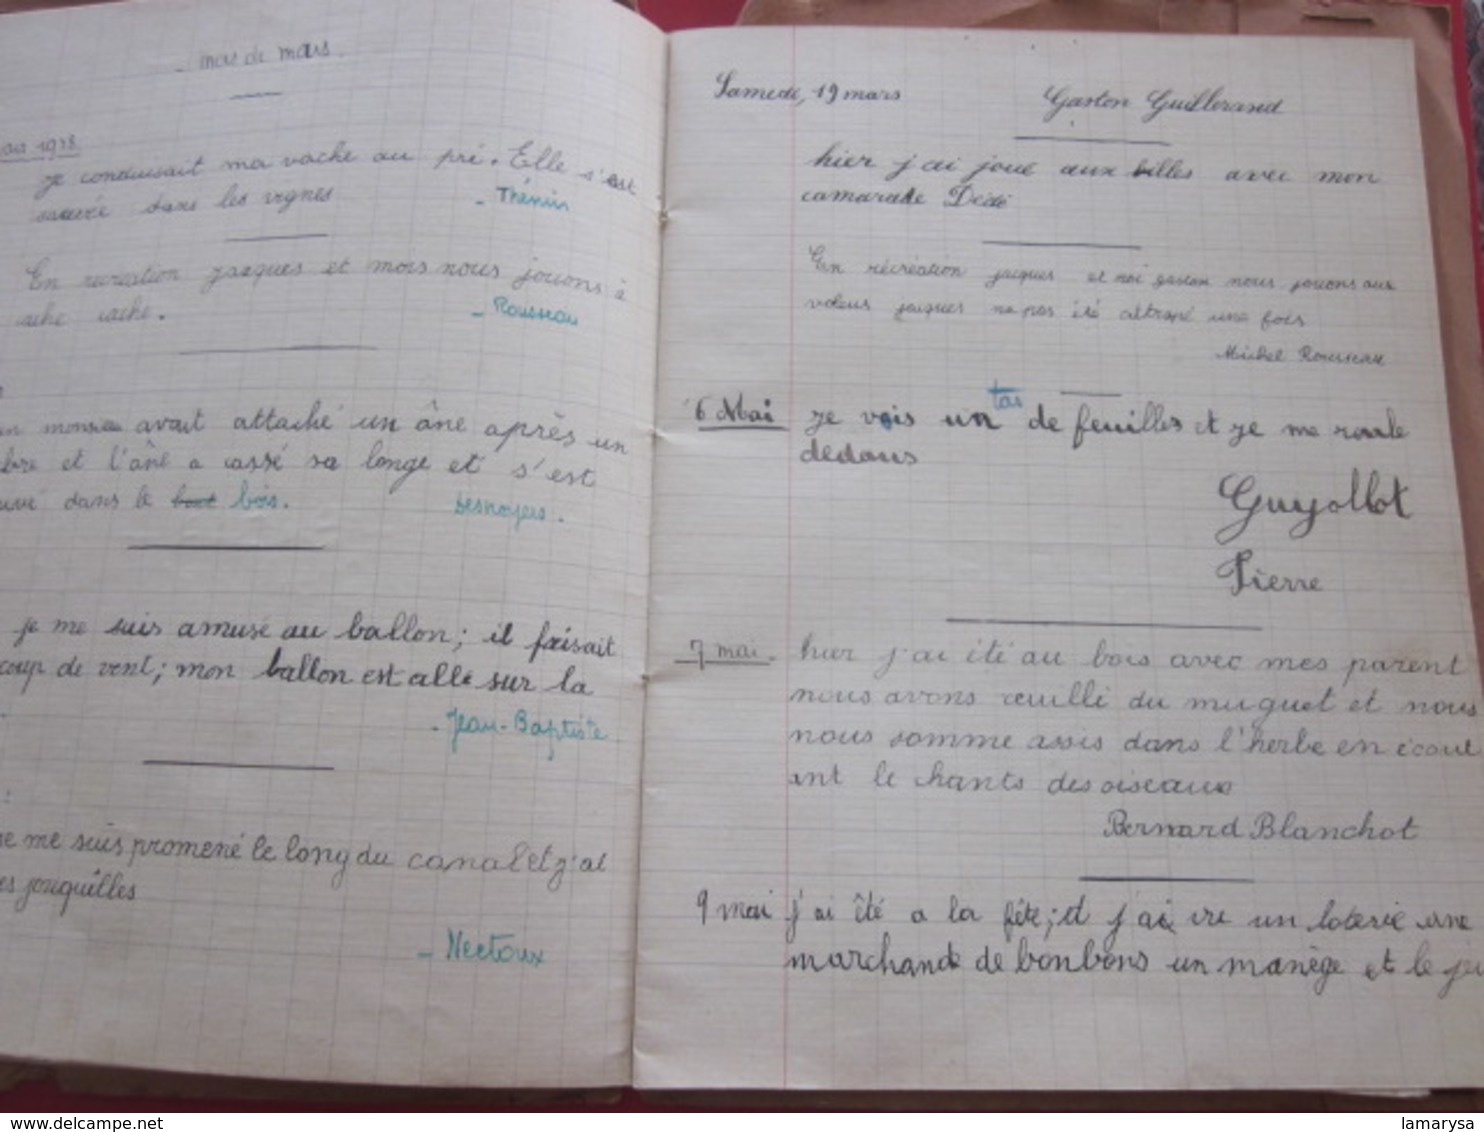 - mois de mars.
mars 1938
je conduisait ma vache au pré. Elle s'est
sauvée dans les vignes
- Thévin
En recreation jacques et mois nous jouons à
cache cache.
- Rousseau
un monsieu avait attaché un âne après un
bre et l'âne a cassé sa longe et s'est
dans le bout bois.
Desnoyers.
je me suis amusé au ballon; il faisait
coup de vent; mon ballon est allé sur la
- Jean-Baptiste
je me suis promené le long du canal et j'ai
es jonquilles
- Nectoux
Samedi, 19 mars Gaston Guillerand
hier j'ai joué aux billes avec mon
camarade Dédé
En récréation jacques et moi gaston nous jouons aux
voleurs jacques na pas été attrapé une fois
Michel Rousseau
6 Mai je vois un tas de feuilles et je me roule
dedans
Guyollot
Pierre
7 mai - hier j'ai été au bois avec mes parent
nous avons ceuilli du muguet et nous
nous somme assis dans l'herbe en écout
ant le chants des oiseaux
Bernard Blanchot
9 mai j'ai été a la fête; d j'ai vu un loterie une
marchande de bonbons un manège et le jeu
delcampe.net
lamarysa